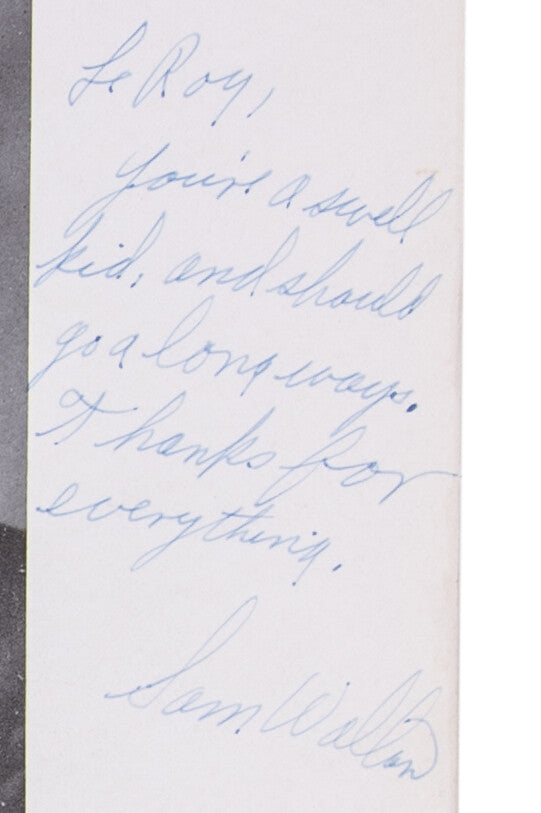 Le Roy,
You're a swell
kid, and should
go a long ways.
Thanks for
everything.
Sam Walton